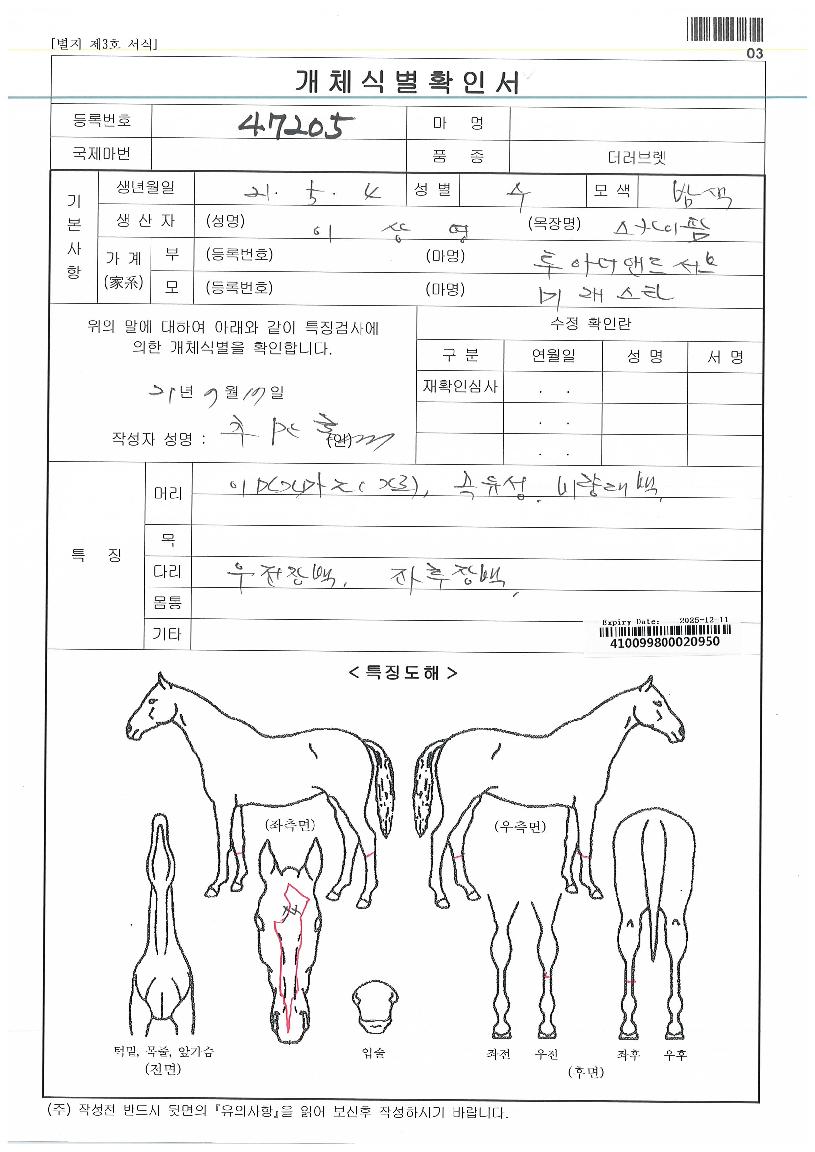 [별지 제3호 서식]
03
개체식별확인서
등록번호 47205 마 명
국제마번 품 종 더러브렛
기본사항
생년월일 21. 5. 4 성 별 수 모 색 밤색
생 산 자 (성명) 이 상 영 (목장명)
가 계 (家系) 부 (등록번호) (마명) 투아너앤드서브
모 (등록번호) (마명) 미래스타
위의 말에 대하여 아래와 같이 특징검사에
의한 개체식별을 확인합니다.
21년 9월 17일
작성자 성명 : (인)
수정 확인란
구 분 연월일 성 명 서 명
재확인심사 . .
. .
. .
특 징
머리 곡유성, 비량대백
목
다리 우전장백, 좌후장백,
몸통
기타
Expiry Date: 2025-12-11
410099800020950
< 특징도해 >
(좌측면) (우측면)
턱밑, 목줄, 앞가슴
(전면)
입술
좌전 우전 좌후 우후
(후면)
(주) 작성전 반드시 뒷면의 『유의사항』을 읽어 보신후 작성하시기 바랍니다.